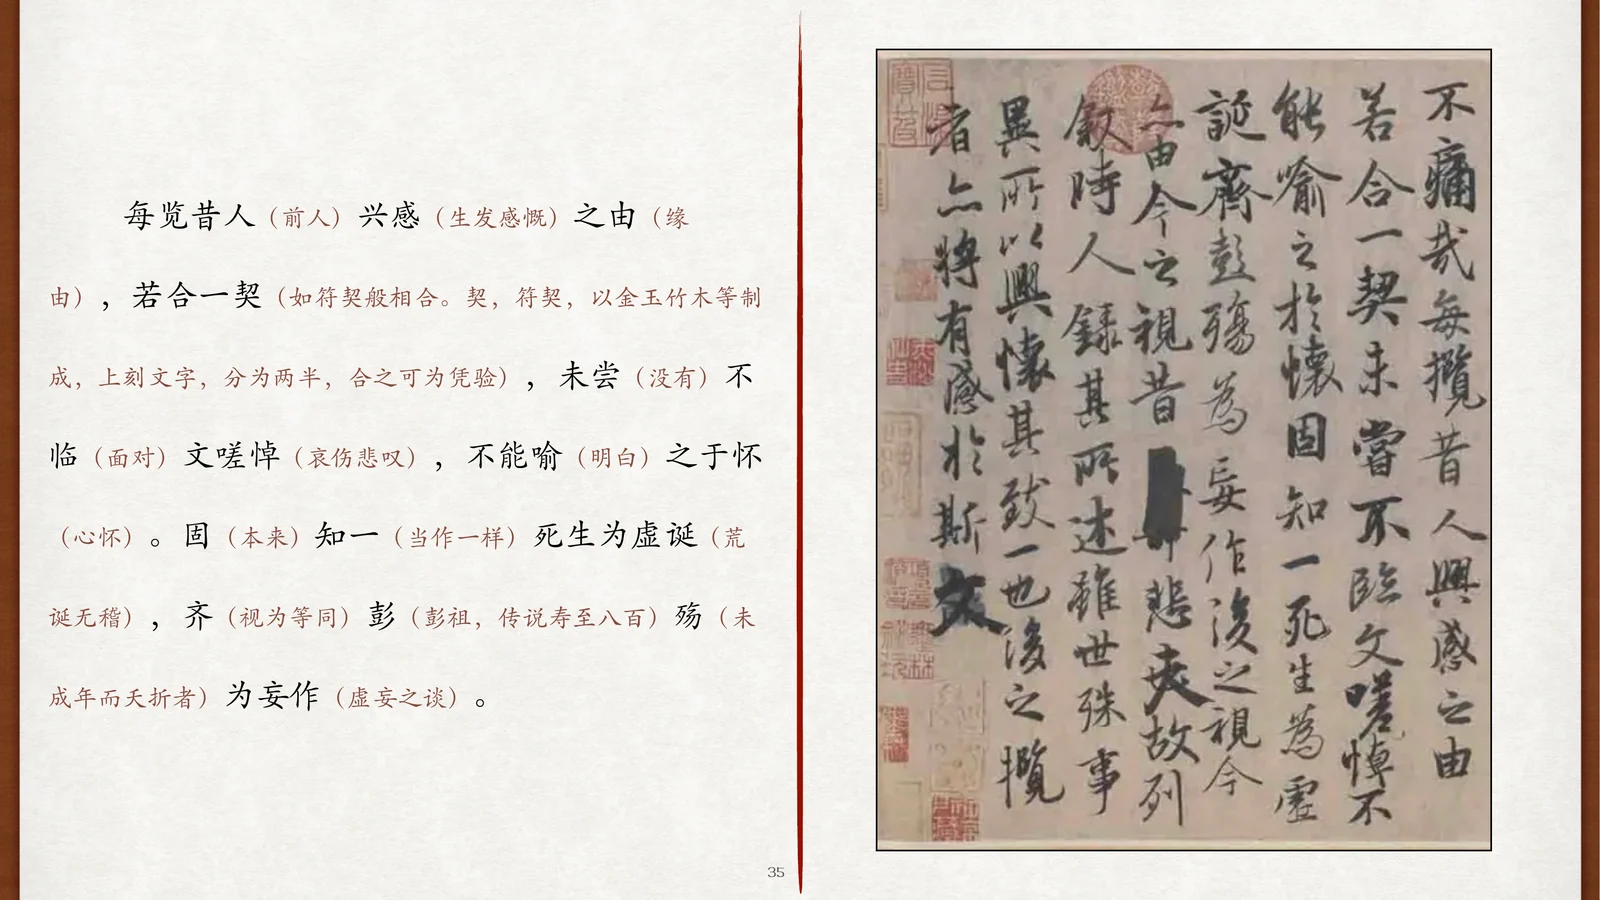 每览昔人（前人）兴感（生发感慨）之由（缘
由），若合一契（如符契般相合。契，符契，以金玉竹木等制
成，上刻文字，分为两半，合之可为凭验），未尝（没有）不
临（面对）文嗟悼（哀伤悲叹），不能喻（明白）之于怀
（心怀）。固（本来）知一（当作一样）死生为虚诞（荒
诞无稽），齐（视为等同）彭（彭祖，传说寿至八百）殇（未
成年而夭折者）为妄作（虚妄之谈）。
35
不痛哉每攬昔人興感之由
若合一契未嘗不臨文嗟悼不
能喻之於懷固知一死生為虛
誕齊彭殤為妄作後之視今
亦由今之視昔悲夫故列
敘時人錄其所述雖世殊事
異所以興懷其致一也後之攬
者亦將有感於斯文